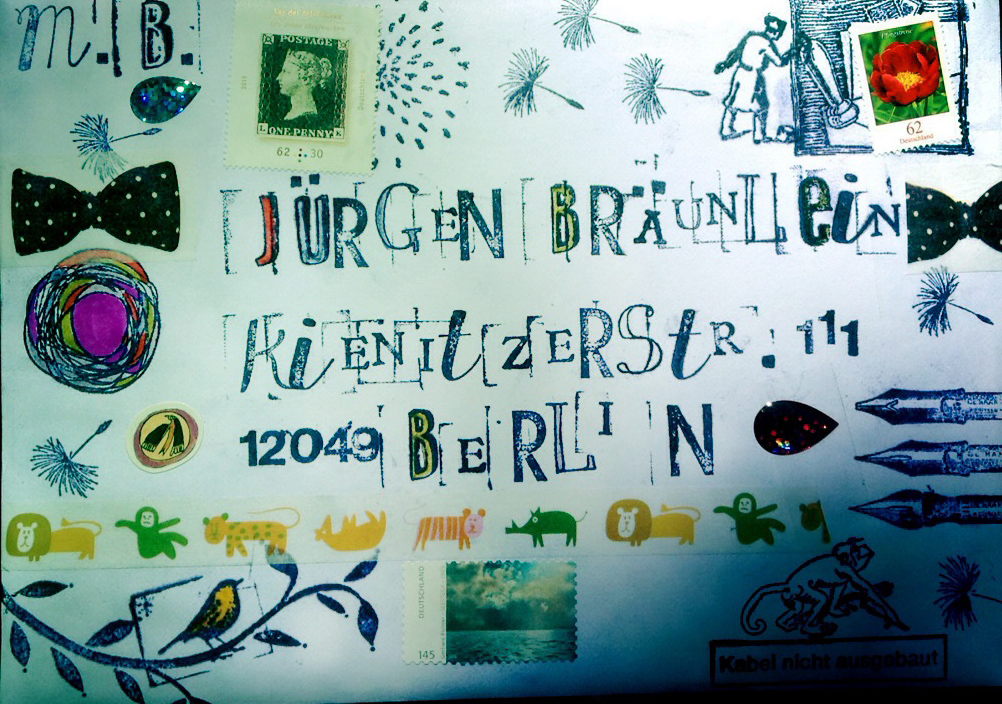 m. B.
POSTAGE
L ONE PENNY K
62 30
Pfingstrose
62
Deutschland
JÜRGEN BRÄUNLEiN
KiENitzERStR. 111
12049 BERLIN N
DEUTSCHLAND
145
Kabel nicht ausgebaut